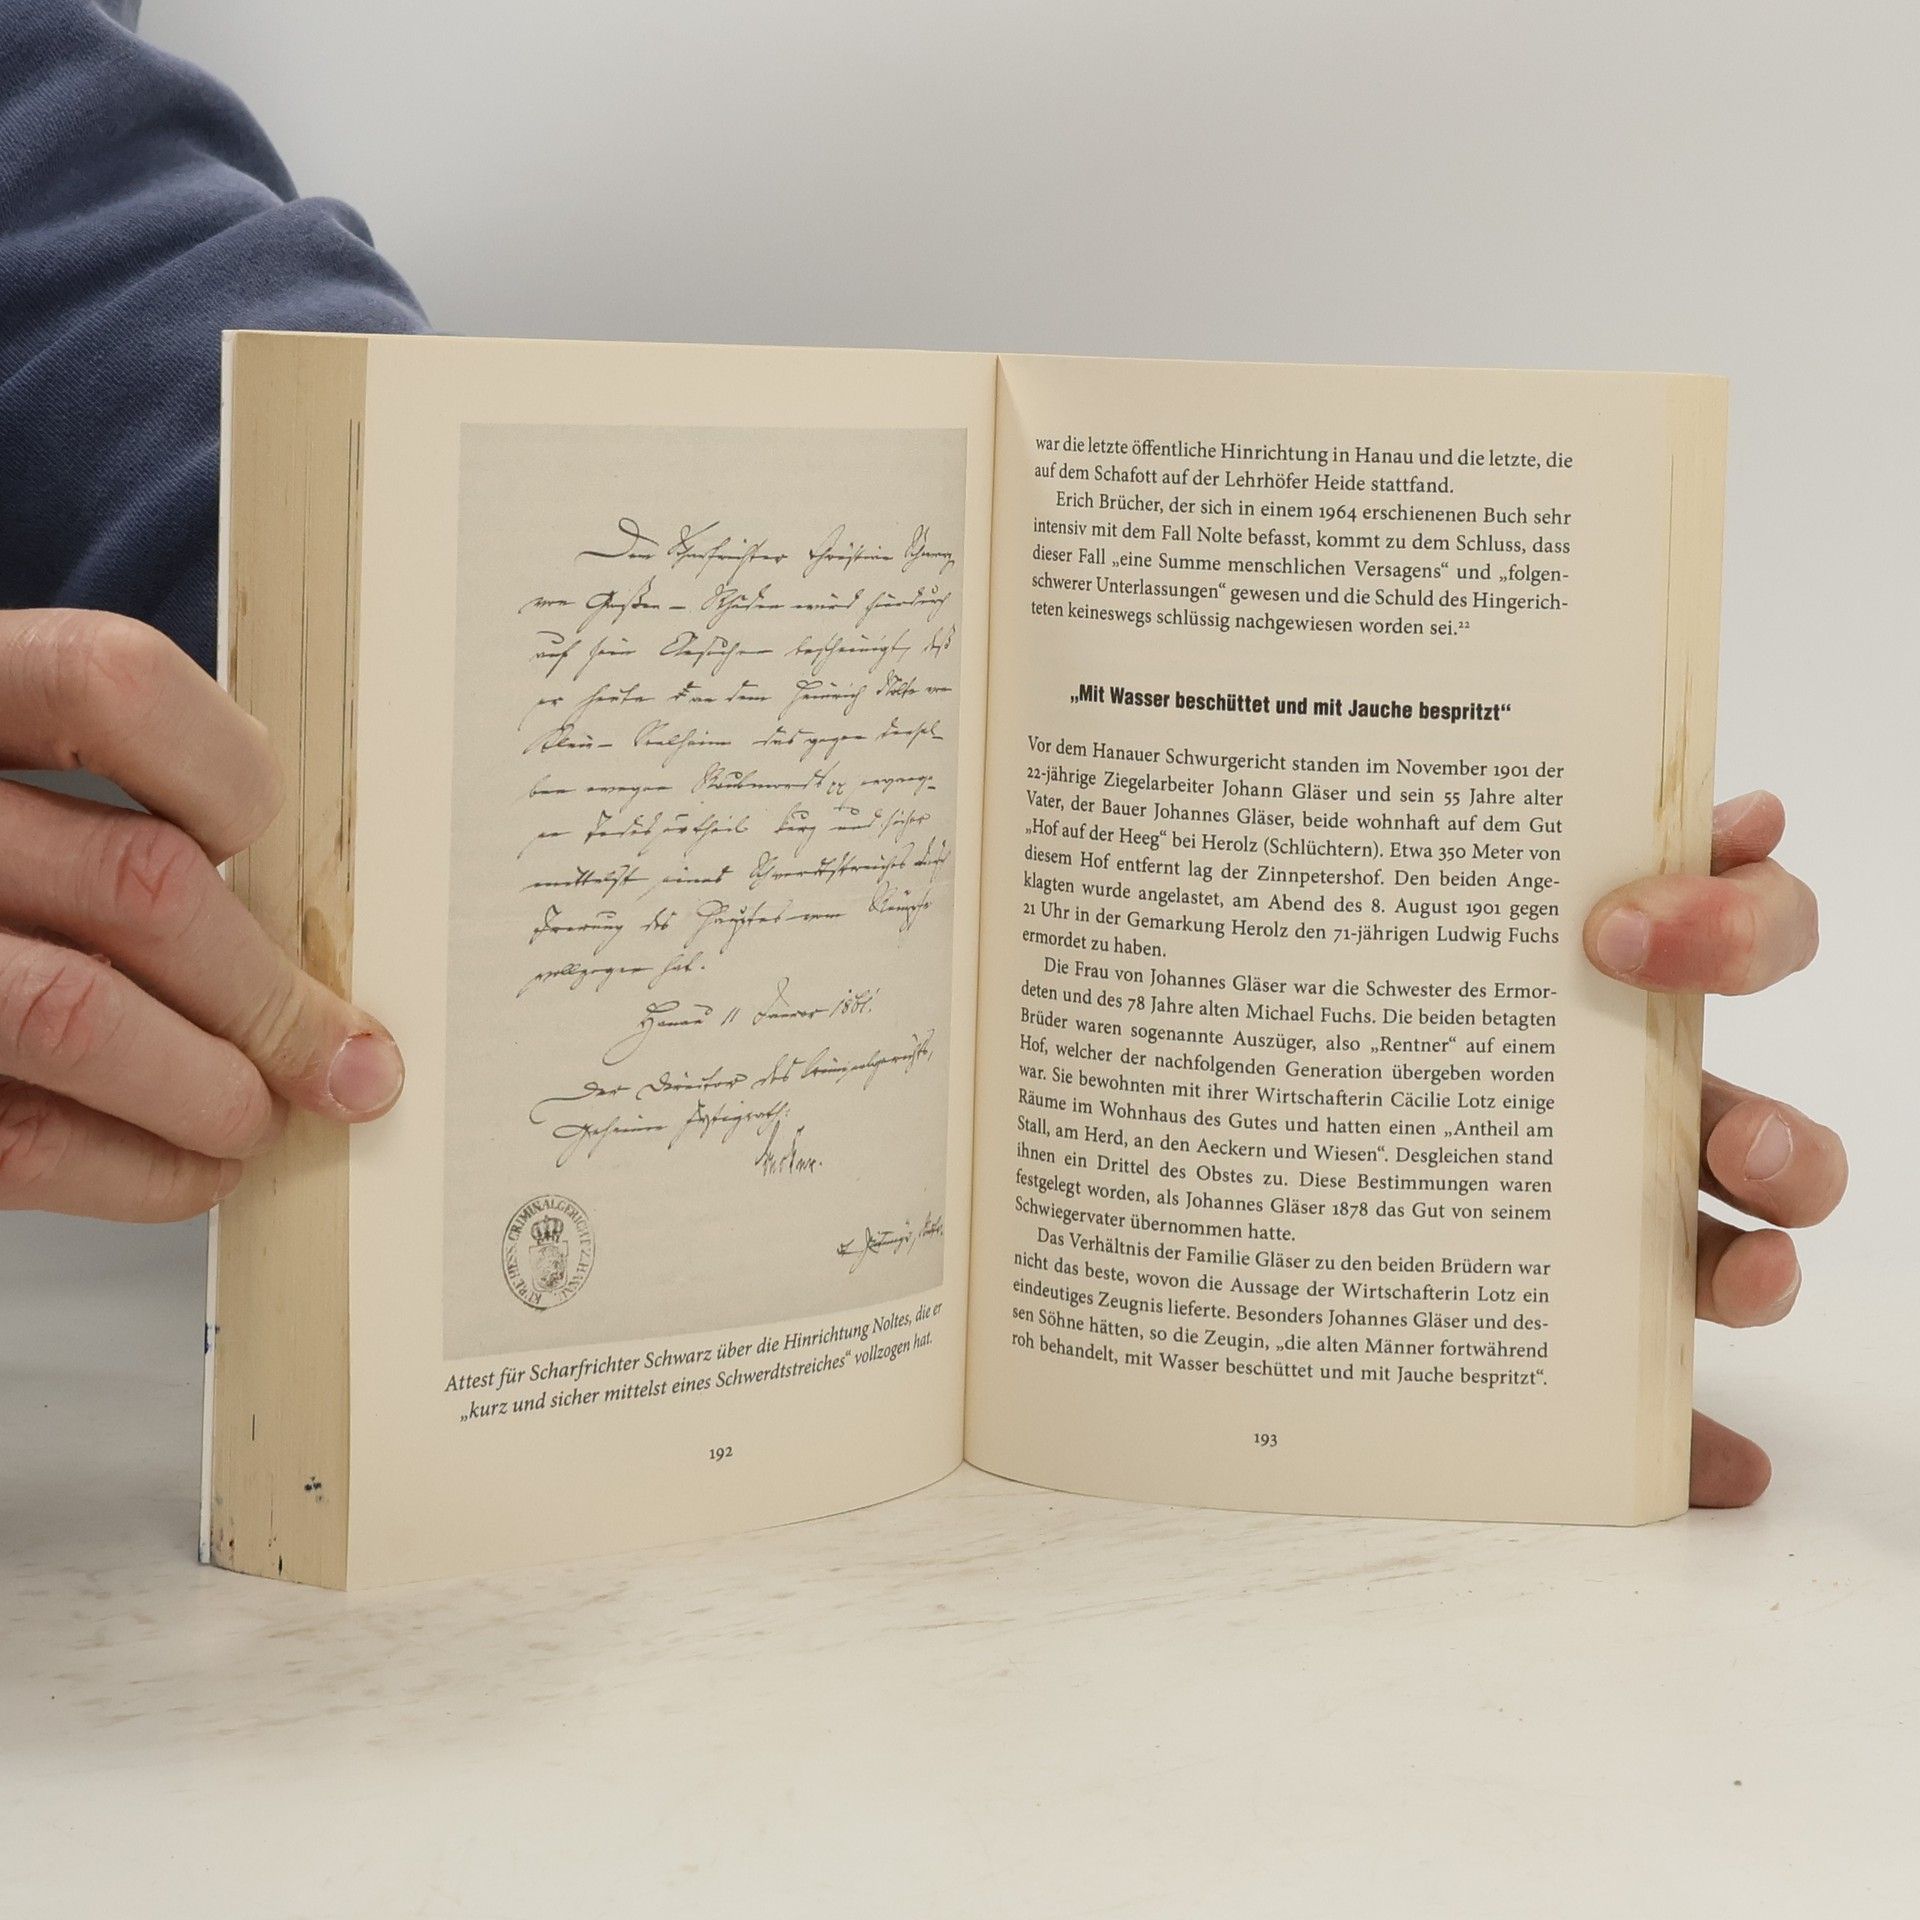 Dem Scharfrichter Christian Schwarz
von Großen – wird hierdurch
auf sein Ansuchen bescheinigt, daß
er heute an dem Heinrich Nolte von
Klein – Seelheim das gegen densel-
ben wegen Raubmords ergange-
ne Todesurtheil kurz und sicher
mittelst eines Schwerdtstreiches durch
Trennung des Hauptes vom Rumpfe
vollzogen hat.
Hanau 11 Januar 1861.
Der Director des Criminalgerichts,
Geheime Justizrath:
KURHESS. CRIMINALGERICHT Z. HANAU
Attest für Scharfrichter Schwarz über die Hinrichtung Noltes, die er
„kurz und sicher mittelst eines Schwerdtstreiches“ vollzogen hat.
192
war die letzte öffentliche Hinrichtung in Hanau und die letzte, die
auf dem Schafott auf der Lehrhöfer Heide stattfand.
Erich Brücher, der sich in einem 1964 erschienenen Buch sehr
intensiv mit dem Fall Nolte befasst, kommt zu dem Schluss, dass
dieser Fall „eine Summe menschlichen Versagens“ und „folgen-
schwerer Unterlassungen“ gewesen und die Schuld des Hingerich-
teten keineswegs schlüssig nachgewiesen worden sei.²²
„Mit Wasser beschüttet und mit Jauche bespritzt“
Vor dem Hanauer Schwurgericht standen im November 1901 der
22-jährige Ziegelarbeiter Johann Gläser und sein 55 Jahre alter
Vater, der Bauer Johannes Gläser, beide wohnhaft auf dem Gut
„Hof auf der Heeg“ bei Herolz (Schlüchtern). Etwa 350 Meter von
diesem Hof entfernt lag der Zinnpetershof. Den beiden Ange-
klagten wurde angelastet, am Abend des 8. August 1901 gegen
21 Uhr in der Gemarkung Herolz den 71-jährigen Ludwig Fuchs
ermordet zu haben.
Die Frau von Johannes Gläser war die Schwester des Ermor-
deten und des 78 Jahre alten Michael Fuchs. Die beiden betagten
Brüder waren sogenannte Auszüger, also „Rentner“ auf einem
Hof, welcher der nachfolgenden Generation übergeben worden
war. Sie bewohnten mit ihrer Wirtschafterin Cäcilie Lotz einige
Räume im Wohnhaus des Gutes und hatten einen „Antheil am
Stall, am Herd, an den Aeckern und Wiesen“. Desgleichen stand
ihnen ein Drittel des Obstes zu. Diese Bestimmungen waren
festgelegt worden, als Johannes Gläser 1878 das Gut von seinem
Schwiegervater übernommen hatte.
Das Verhältnis der Familie Gläser zu den beiden Brüdern war
nicht das beste, wovon die Aussage der Wirtschafterin Lotz ein
eindeutiges Zeugnis lieferte. Besonders Johannes Gläser und des-
sen Söhne hätten, so die Zeugin, „die alten Männer fortwährend
roh behandelt, mit Wasser beschüttet und mit Jauche bespritzt“.
193